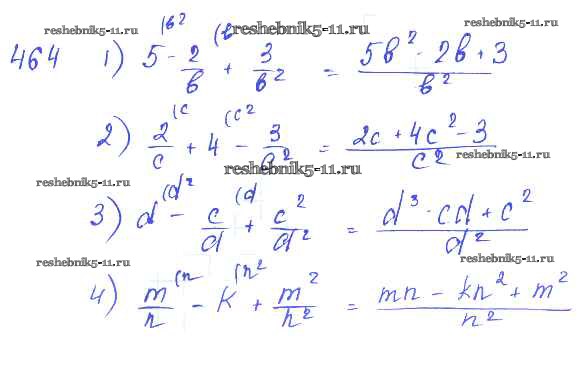 reshebnik5-11.ru reshebnik5-11.ru reshebnik5-11.ru
464 1) 5 (b² - 2/b (b + 3/b² = (5b² - 2b + 3)/b²
2) 2/c (c + 4 (c² - 3/c² = (2c + 4c² - 3)/c²
reshebnik5-11.ru reshebnik5-11.ru reshebnik5-11.ru
3) d (d² - c/d (d + c²/d² = (d³ - cd + c²)/d²
reshebnik5-11.ru reshebnik5-11.ru
4) m/n (n - k (n² + m²/n² = (mn - kn² + m²)/n²